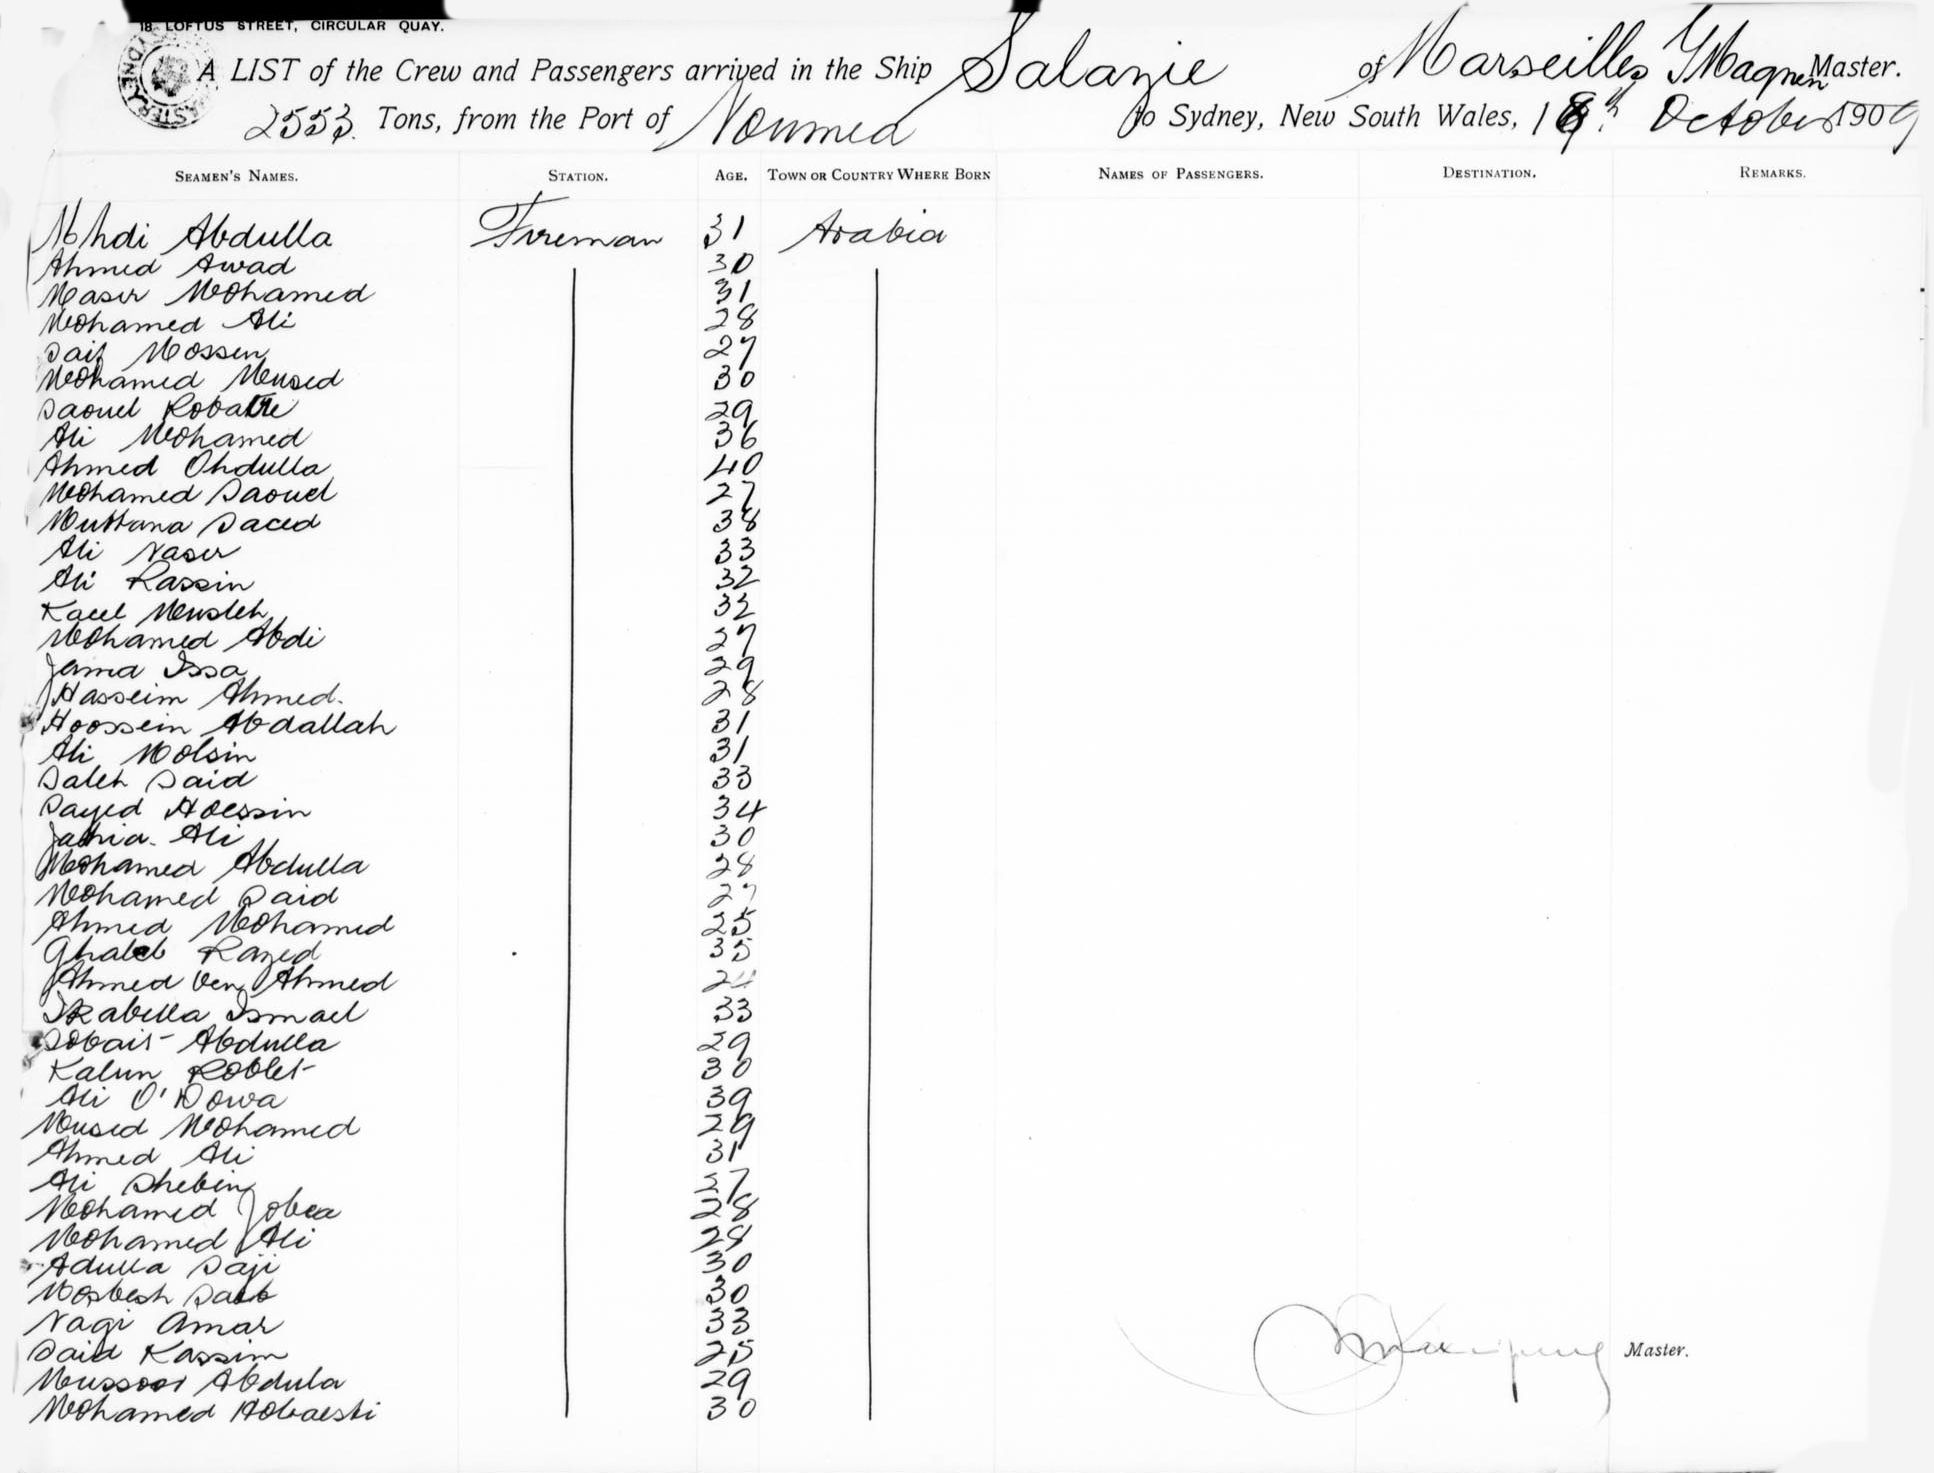 18 LOFTUS STREET, CIRCULAR QUAY.
A LIST of the Crew and Passengers arrived in the Ship Salazie of Marseilles Magnen Master.
2553 Tons, from the Port of Noumea to Sydney, New South Wales, October 1909
SEAMEN'S NAMES. STATION. AGE. TOWN OR COUNTRY WHERE BORN NAMES OF PASSENGERS. DESTINATION. REMARKS.
Mhdi Abdulla Fireman 31 Arabia
Ahmed Awad 30
Naser Mohamed 31
Mohamed Ali 28
Saif Mossen 27
Mohamed Mused 30
Saouel 29
Ali Mohamed 36
Ahmed Ohdulla 40
Mohamed Saouel 27
Muttana Saeed 38
Ali Naser 33
Ali Rassin 32
Kacel Musleh 32
Mohamed Abdi 27
Jama Issa 29
Hasseim Ahmed. 28
Hoossein Abdallah 31
Ali Molsin 31
Saleh Said 33
Sayed Hoessin 34
Ali 30
Mohamed Abdulla 28
Mohamed Said 27
Ahmed Mohamed 25
Ghaleb Razed 35
Ahmed ben Ahmed 24
Ismael 33
Sobait Abdulla 29
Kalun Roblet 30
Ali O'Dowa 39
Mused Mohamed 29
Ahmed Ali 31
Ali Shebin 37
Mohamed Jobea 28
Mohamed Ali 28
Adulla Saji 30
Mosbesh 30
Nagi Amar 33
Said Kassim 25
Master.
Mussoor Abdula 29
Mohamed 30